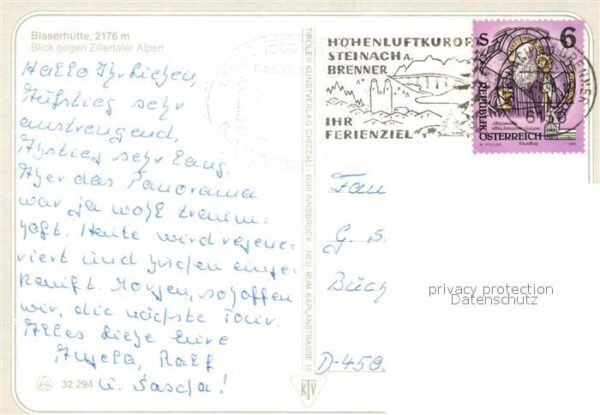 Blaserhütte, 2176 m
Blick gegen Zillertaler Alpen
Hallo Ihr Lieben,
Aufstieg sehr
anstrengend,
Abstieg sehr lang.
Aber das Panorama
war ja wohl traum-
haft. Heute wird regene-
riert und bischen einge-
kauft. Morgen, schaffen
wir, die nächste Tour.
Alles Liebe Eure
Angela, Ralf
u. Sascha!
32 294
TIROLER KUNSTVERLAG CHIZZALI · 6040 INNSBRUCK · NEU-RUM KAPLANSTRASSE 10
KTV
HÖHENLUFTKUROR
STEINACH A.
BRENNER
IHR
FERIENZIEL
S 6
REPUBLIK
ÖSTERREICH
BRENNER
Fam
G. S
Büch
D-459
privacy protection
Datenschutz